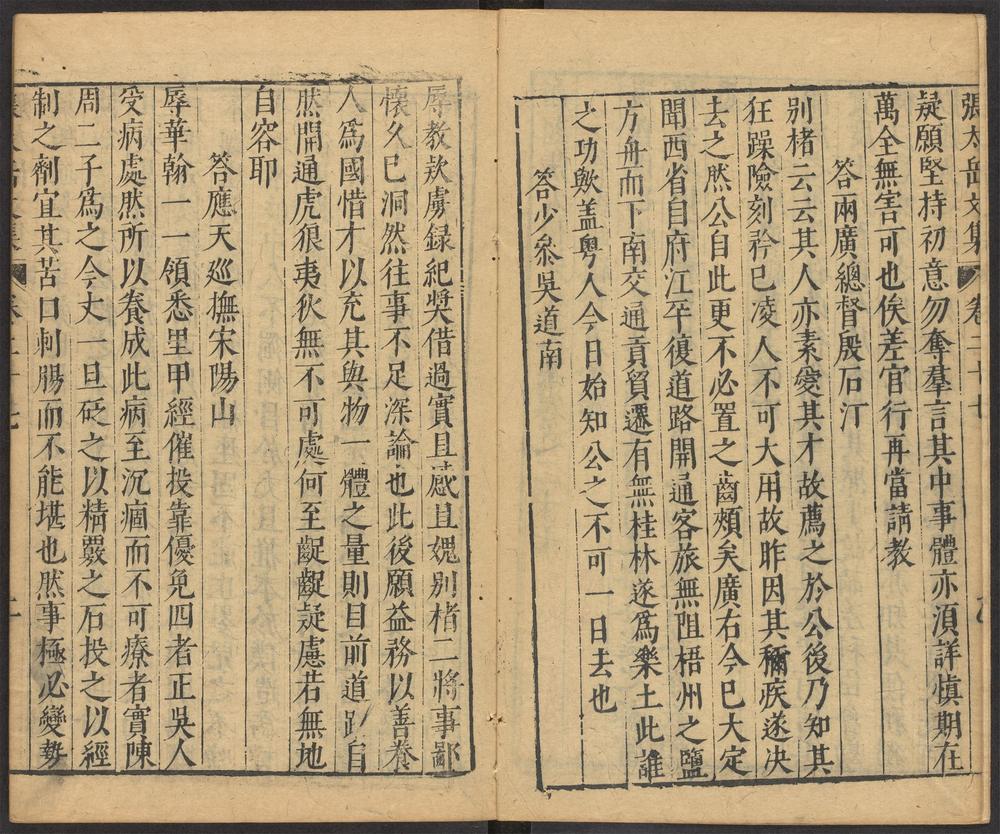 張太岳文集 卷二十七
疑願堅持初意勿奪羣言其中事體亦須詳慎期在
萬全無害可也俟差官行再當請教
答兩廣總督殷石汀
别楮云云其人亦素愛其才故薦之於公後乃知其
狂躁險刻矜已凌人不可大用故昨因其稱疾遂决
去之然公自此更不必置之齒頰矣廣右今已大定
聞西省自府江平復道路開通客旅無阻梧州之鹽
方舟而下南交通貢貿遷有無桂林遂爲樂土此誰
之功歟盖粤人今日始知公之不可一日去也
答少叅吳道南
辱教欵虜録紀奬借過實且感且媿别楮二將事鄙
懷久已洞然往事不足深論也此後願益務以善養
人爲國惜才以充其與物一體之量則目前道路自
然開通虎狼夷狄無不可處何至齪齪疑慮若無地
自容耶
答應天巡撫宋陽山
辱華翰一一領悉里甲經催投靠優免四者正吳人
受病處然所以養成此病至沉痼而不可療者實陳
周二子爲之今丈一旦砭之以精覈之石投之以經
制之劑宜其苦口刺腸而不能堪也然事極必變勢